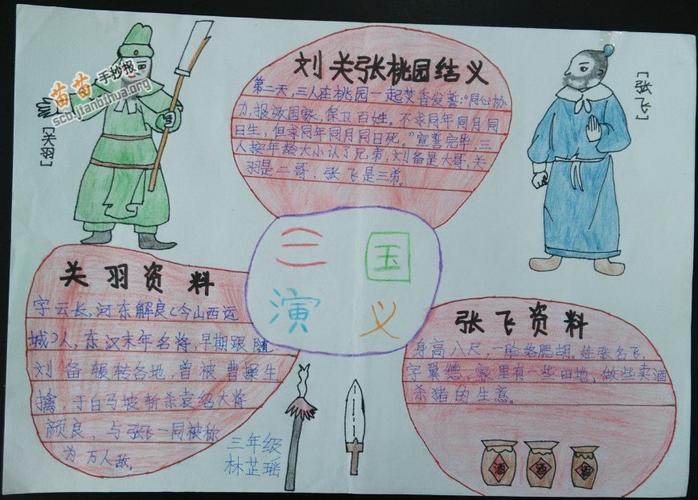 苗苗手抄报
scb.jianbihua.org
[关羽]
刘关张桃园结义
第二天,三人在桃园一起焚香发誓:"同心协
力,报效国家,保卫百姓,不求同年同月同
日生,但求同年同月同日死。"宣誓完毕,三
人按年龄大小认了兄弟,刘备是大哥,关
羽是二哥,张飞是三弟。
[张飞]
三国
演义
关羽资料
字云长,河东解良(今山西运
城)人,东汉末年名将,早期跟随
刘备辗转各地,曾被曹操生
擒,于白马坡斩杀袁绍大将
颜良,与张飞一同被称
为万人敌。
张飞资料
身高八尺,一脸络腮胡,姓张名飞,
字翼德,家里有一些田地,做些卖酒
杀猪的生意。
三年级
林芷瑶
酒
酒